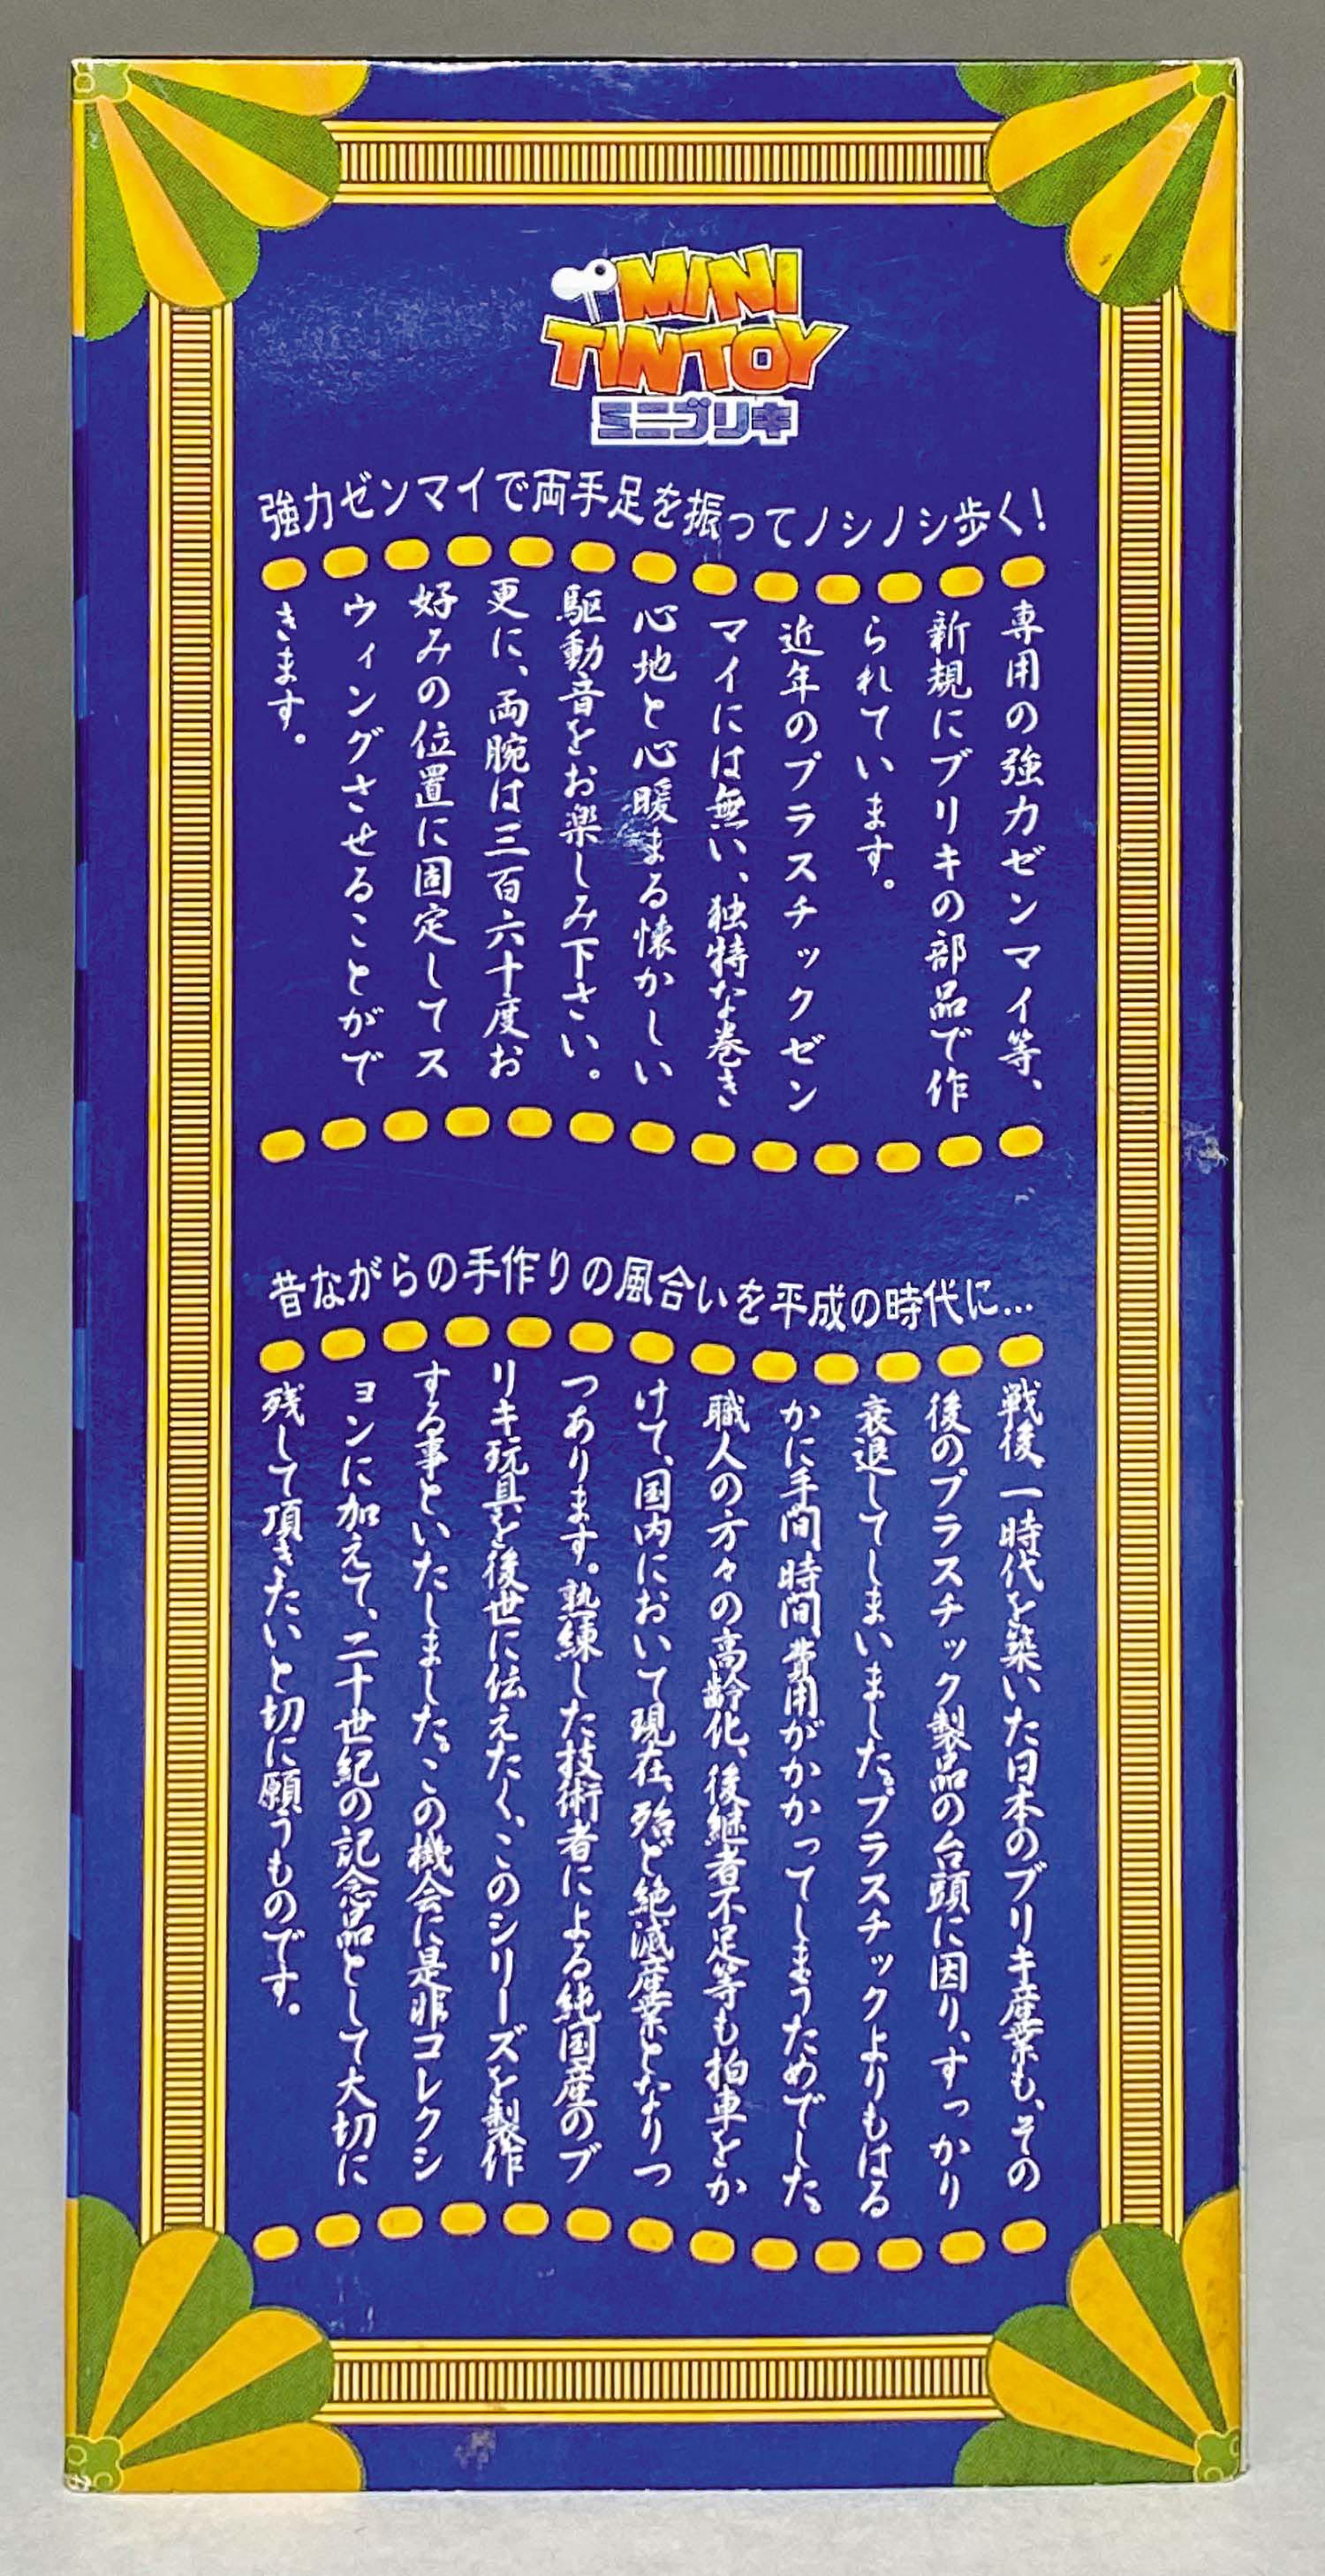 MINI
TINTOY
ミニブリキ
強力ゼンマイで両手足を振ってノシノシ歩く!
専用の強力ゼンマイ等、
新規にブリキの部品で作
られています。
近年のプラスチックゼン
マイには無い、独特な巻き
心地と心暖まる懐かしい
駆動音をお楽しみ下さい。
更に、両腕は三百六十度お
好みの位置に固定してス
ウィングさせることがで
きます。
昔ながらの手作りの風合いを平成の時代に…
戦後、一時代を築いた日本のブリキ産業も、その
後のプラスチック製品の台頭に因り、すっかり
衰退してしまいました。プラスチックよりもはる
かに手間時間費用がかかってしまうためでした。
職人の方々の高齢化、後継者不足等も拍車をか
けて、国内において現在、殆ど絶滅産業となりつ
つあります。熟練した技術者による純国産のブ
リキ玩具を後世に伝えたく、このシリーズを製作
する事といたしました。この機会に是非コレクシ
ョンに加えて、二十世紀の記念品として大切に
残して頂きたいと切に願うものです。